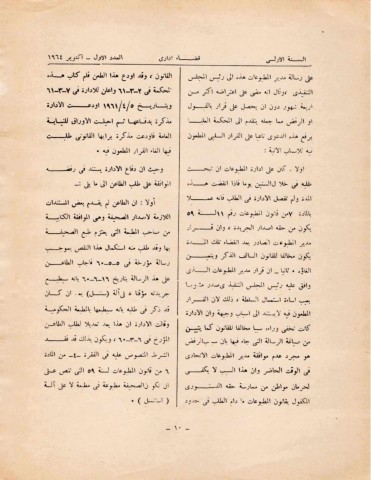 السنة الاولى
قضاء ادارى
العدد الاول - اكتوبر ١٩٦٤
على رسالة مدير المطبوعات هذه الى رئيس المجلس
التنفيذى وقال انه مضى على اعتراضه اكثر من
اربعة شهور دون ان يحصل على قرار بالقبول
او الرفض مما جعله يتقدم الى المحكمة
يرفع هذه الدعوى ناعيا على القرار السلبى المطعون
فيه للاسباب الاتية :
اولا . كان على ادارة المطبوعات ان تبحث
طلبه فى خلال الستين يوما فاذا انقضت هذه
المدة ولم تفصل الادارة فى الطلب فانه عملا
بالمادة ٧ من قانون المطبوعات رقم ١١ لسنة ٥٩
يكون من حقه اصدار الجريدة وان قرار
مدير المطبوعات الصادر بعد انقضاء تلك المدة
يكون مخالفا للقانون السالف الذكر ويتعين
الغاؤه . ثانيا - ان قرار مدير المطبوعات الذى
وافق عليه رئيس المجلس التنفيذى صدر مشوبا
بعيب اساءة استعمال السلطة ذلك لان القرار
المطعون فيه لا يستند الى اسباب وجيهة وان الادارة
كانت تخفى وراءه سببا مخالفا للقانون كما يتبين
من صياغة الرسالة التى جاء فيها ان سبب الرفض
هو مجرد عدم موافقة مدير المطبوعات الاتحادى
فى الوقت الحاضر وان هذا السبب لا يكفى
لحرمان مواطن من ممارسة حقه الدستورى
المكفول بقانون المطبوعات ما دام الطلب فى حدود
القانون ، وقد اودع هذا الطعن قلم كتاب هذه
المحكمة فى ٢-٣-٦١ واعلن للادارة فى ٧-٣-٦١
وبتاريخ ١٩٦١/٤/٥ اودعت الادارة
مذكرة بدفاعها ثم احيلت الاوراق للنيابة
العامة فاودعت مذكرة برايها القانونى طلبت
فيها الغاء القرار المطعون فيه .
وحيث ان دفاع الادارة يستند فى رفضه
الموافقة على طلب الطاعن الى ما يلى :-
اولا : ان الطاعن لم يقدم بعض المستندات
اللازمة لاصدار الصحيفة وهى الموافقة الكتابية
من صاحب المطبعة التى يعتزم طبع الجريدة
بها وقد طلب منه استكمال هذا النقص بموجب
رسالة مؤرخة فى ٥-٥-٦٠ فاجاب الطاعن
على هذه الرسالة بتاريخ ١٦-٦-٦٠ بانه سيطبع
جريدته مؤقتا على آلة (ستنسل) بعد ان كان
قد ذكر فى طلبه بانه سيطبعها بالمطبعة الحكومية
وقالت الادارة ان هذا يعد تعديلا لطلب الطاعن
المؤرخ فى ٦-٣-٦٠ ، ويكون بذلك قد فقد
الشرط المنصوص عليه فى الفقرة ٤ - من المادة
٦ من قانون المطبوعات لسنة ٥٩ التى تنص على
ان تكون الصحيفة مطبوعة فى مطبعة لا على آلة
( استنسل ) .
- ١٠ -